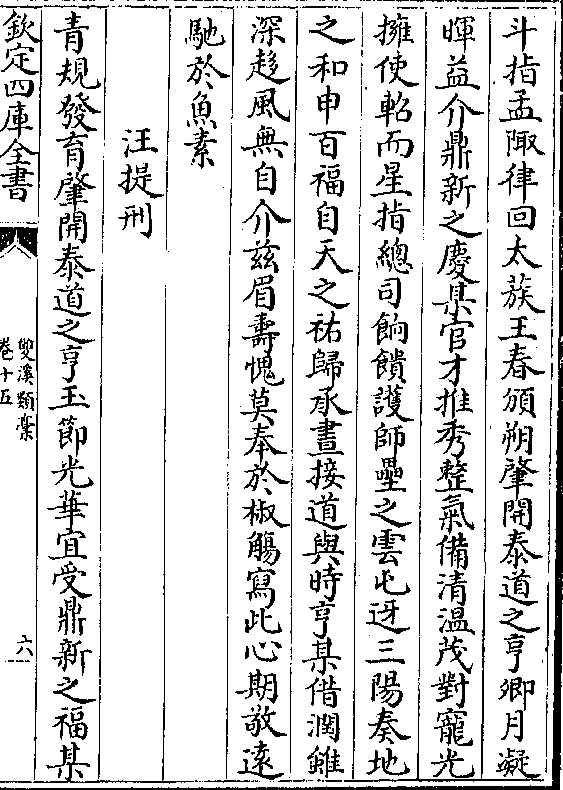 斗指孟陬律回太蔟王春頒朔肇開泰道之亨卿月凝
暉益介鼎新之慶某官才推秀整氣備清温茂對寵光
擁使軺而星指總司餉饋護師壘之雲屯迓三陽奏地
之和申百福自天之祐歸承晝接道與時亨某借潤雖
深趍風無自介兹眉壽愧莫奉於椒觴寫此心期敬遠
馳於魚素
汪提刑
青規發育肇開泰道之亨玉節光華宜受鼎新之福某
欽定四庫全書
雙溪類槀
卷十五
六